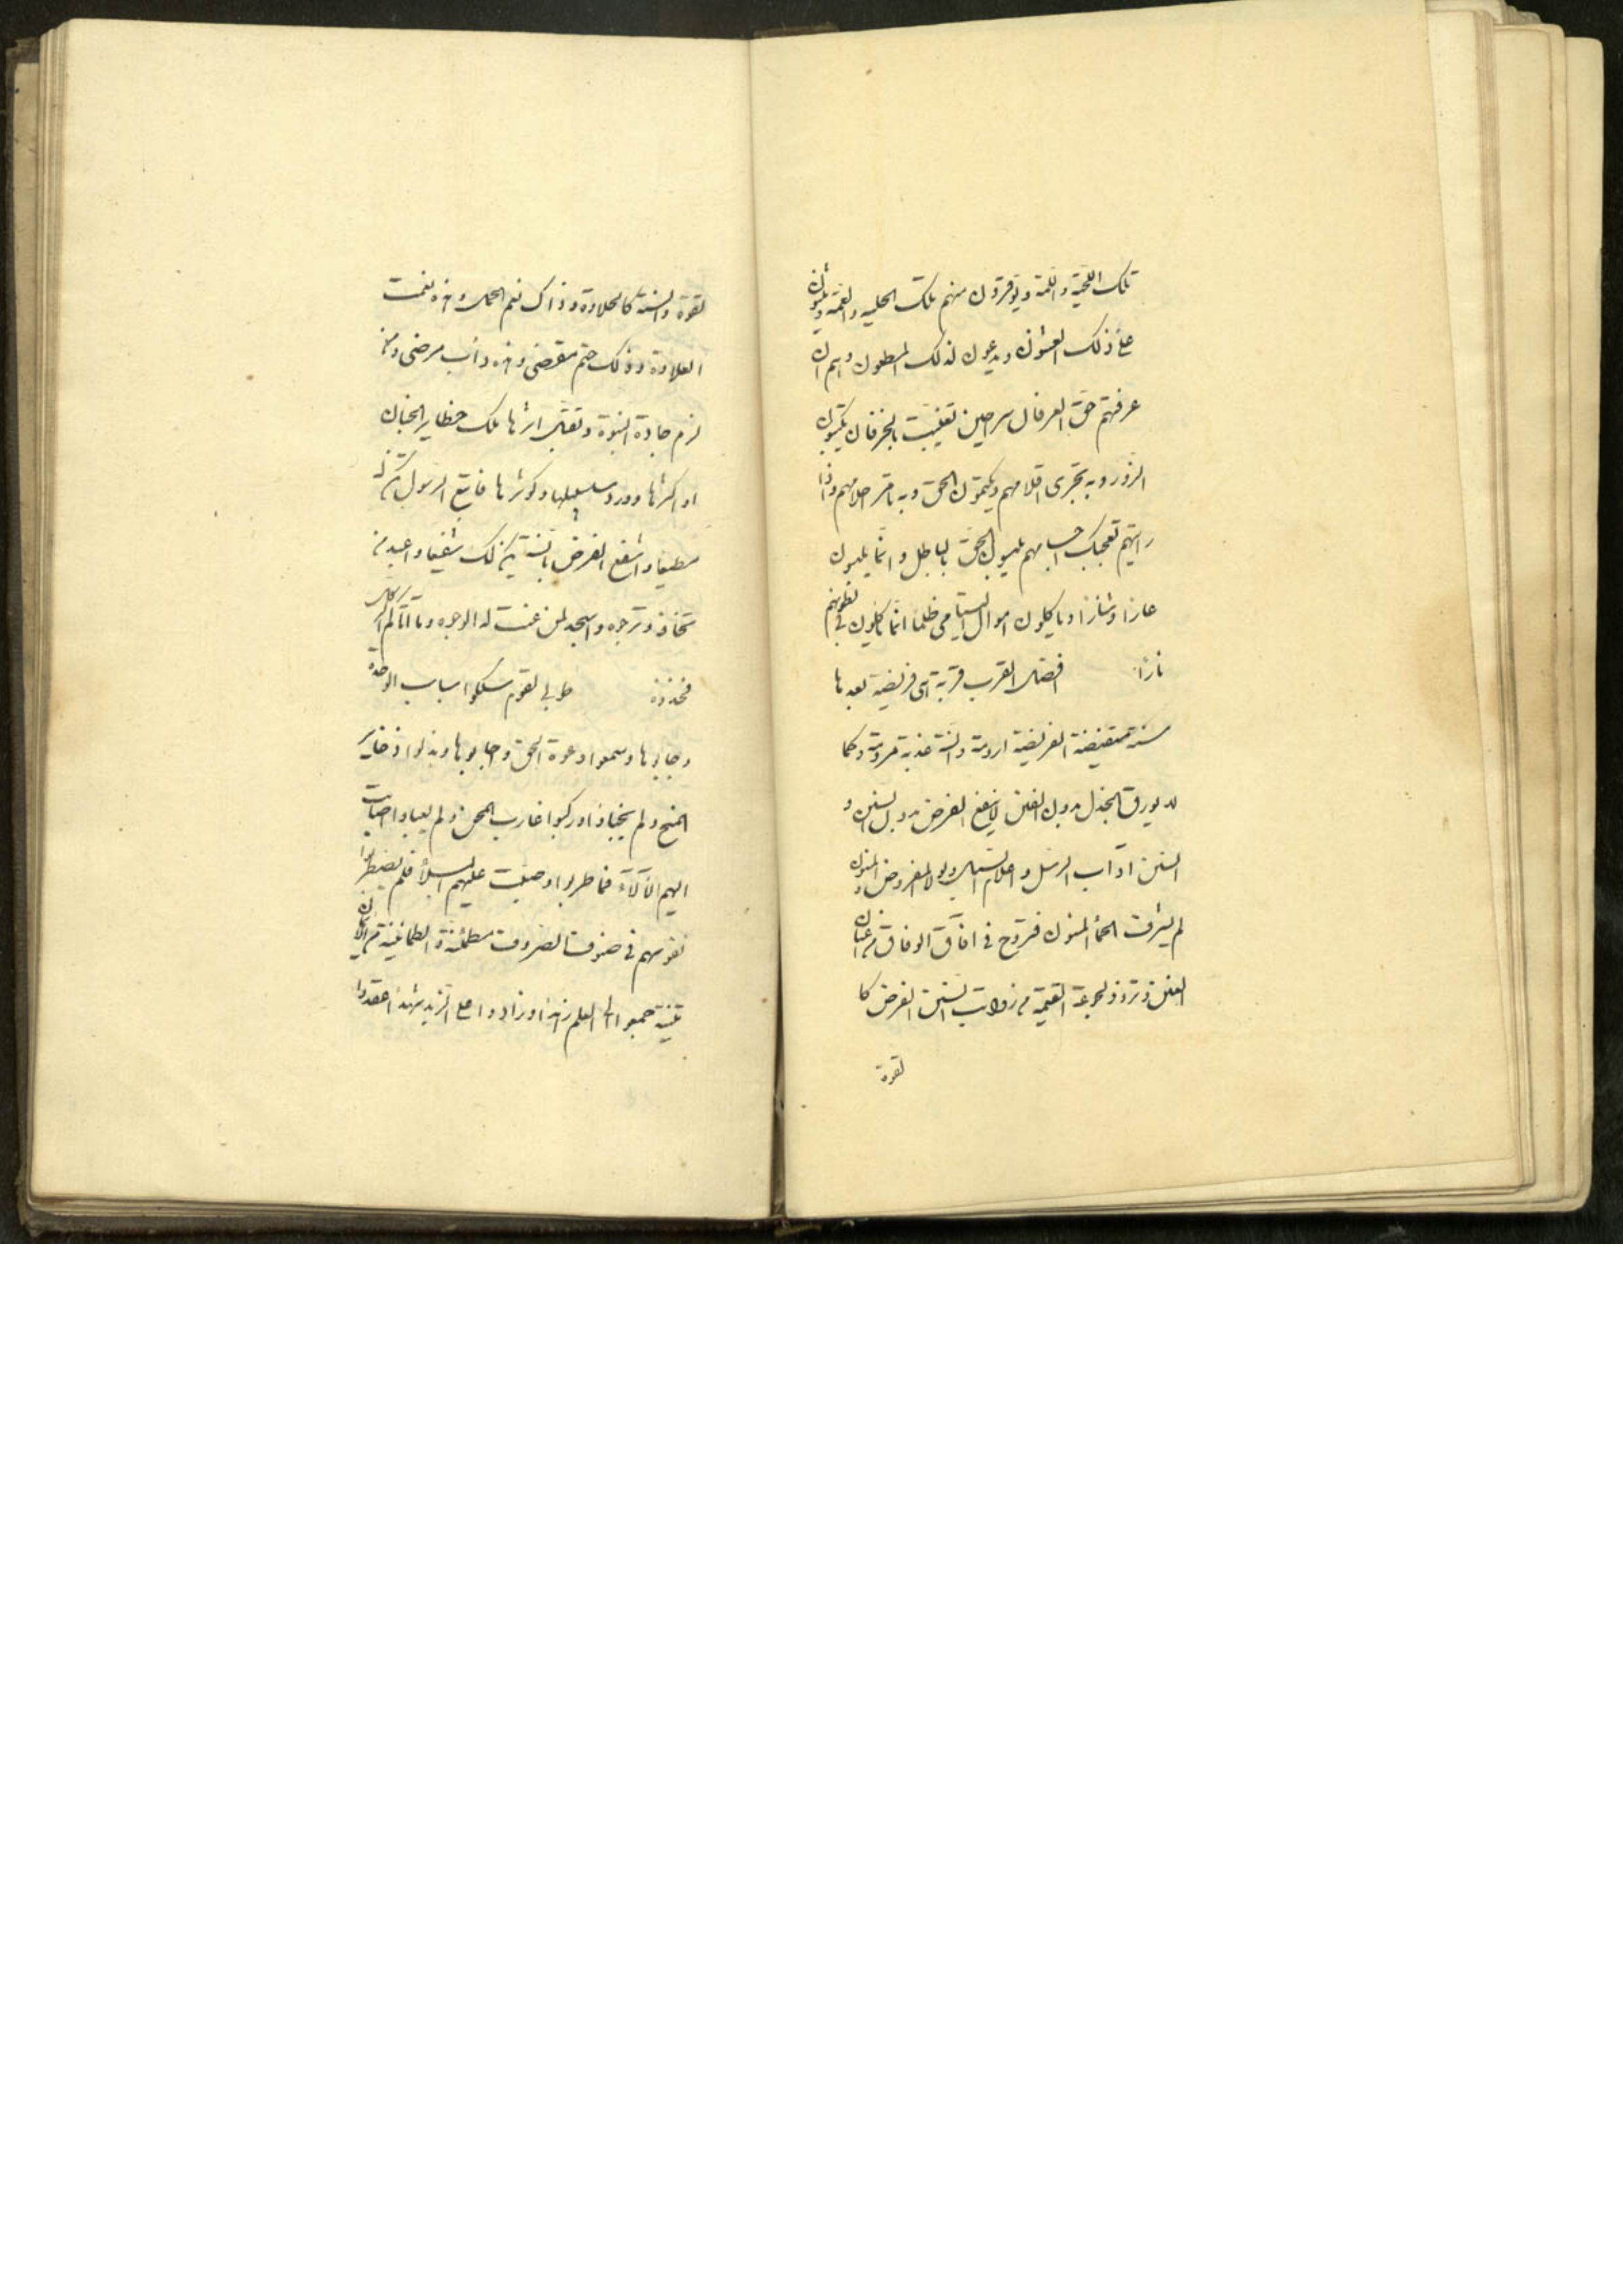 تلك اللحية واللمة ويوقرون منهم تلك الحلية والعمة
على ذلك العشوان ويدعون لذلك
عرفتهم حق العرفان سراحين تغلبت بالخرفان يكتبون
الزور وبه تجرى اقلامهم ويكتمون الحق وبه تامر احلامهم واذا
رايتهم تعجبك اجسامهم يلبسون الحق بالباطل وانما يلبسون
عارا وشنارا وياكلون اموال اليتامى ظلما انما ياكلون فى بطونهم
نارا افضل القرب قربة اى فريضة بعدها
سنة مستفيضة الفريضة ارومة والسنة عذبة مرومة وكما
لا يورق الجذل بدون الغصن لا ينفع الفرض بدون السنن و
السنن آداب الرسل واعلام السبل ولولا المفروض والمسنون
لم يشرف الحمأ المسنون فتروح فى آفاق الوفاق من
الفنن وتزود لجرعة القيمة من السنن الفرض كا
لقوة
لقوة والسنة كالحلاوة وذاك نعم الحمل وهذه نعمت
العلاوة وذلك حتم مقضى وهذه داب مرضى ومن
لزم جادة النبوة وتقبل اثرها ملك حظاير الجنان
او اكثرها وورد سلسبيلها وكوثرها فاتبع الرسول تكن له
مطيعا واشفع الفرض بالسنة يكن لك شفيعا واعبد من
تخافه وترجوه واسجد لمن عنت له الوجوه وما اتاكم الرسول
فخذوه طوبى لقوم سلكوا سباسب الوحدة
وجابوها وسمعوا دعوة الحق واجابوها وبذلوا ذخاير
المنح ولم يخبأوا وركبوا غارب المحن ولم يعبأوا
اليهم الآلاء فما طربوا وصبت عليهم البلاء فلم يضطربوا
نفوسهم فى صنوف الصروف مطمئنة والطمانينة من
جمعوا الى العلم زهدا وزادوا على الزبد شهدا اعتقدوا